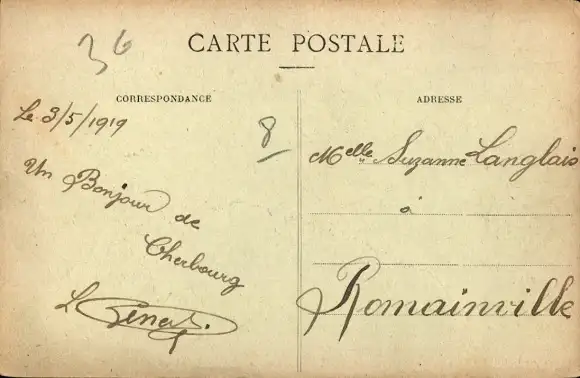 36
CARTE POSTALE
CORRESPONDANCE
Le 3/5/1919
Un Bonjour de
Cherbourg
L.
8
ADRESSE
Melle Suzanne Langlais
à
Romainville